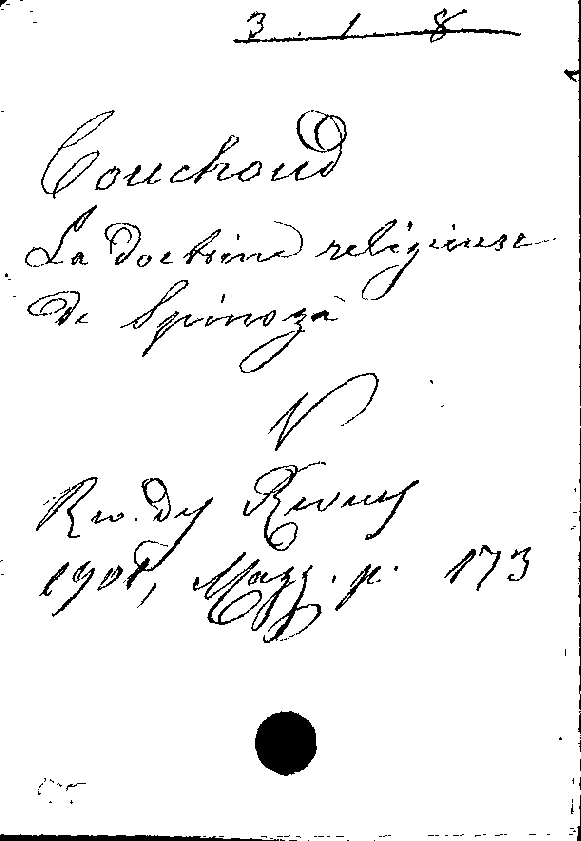 3.1.8
Couchoud
La doctrine religieuse
de Spinoza
V
Rev. des Revues
1901, Magg. p. 173